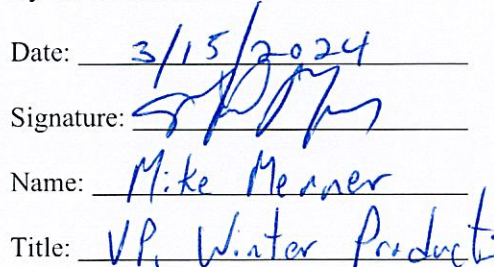 Date: 3/15/2024
Signature:
Name: Mike Menner
Title: VP, Winter Producti